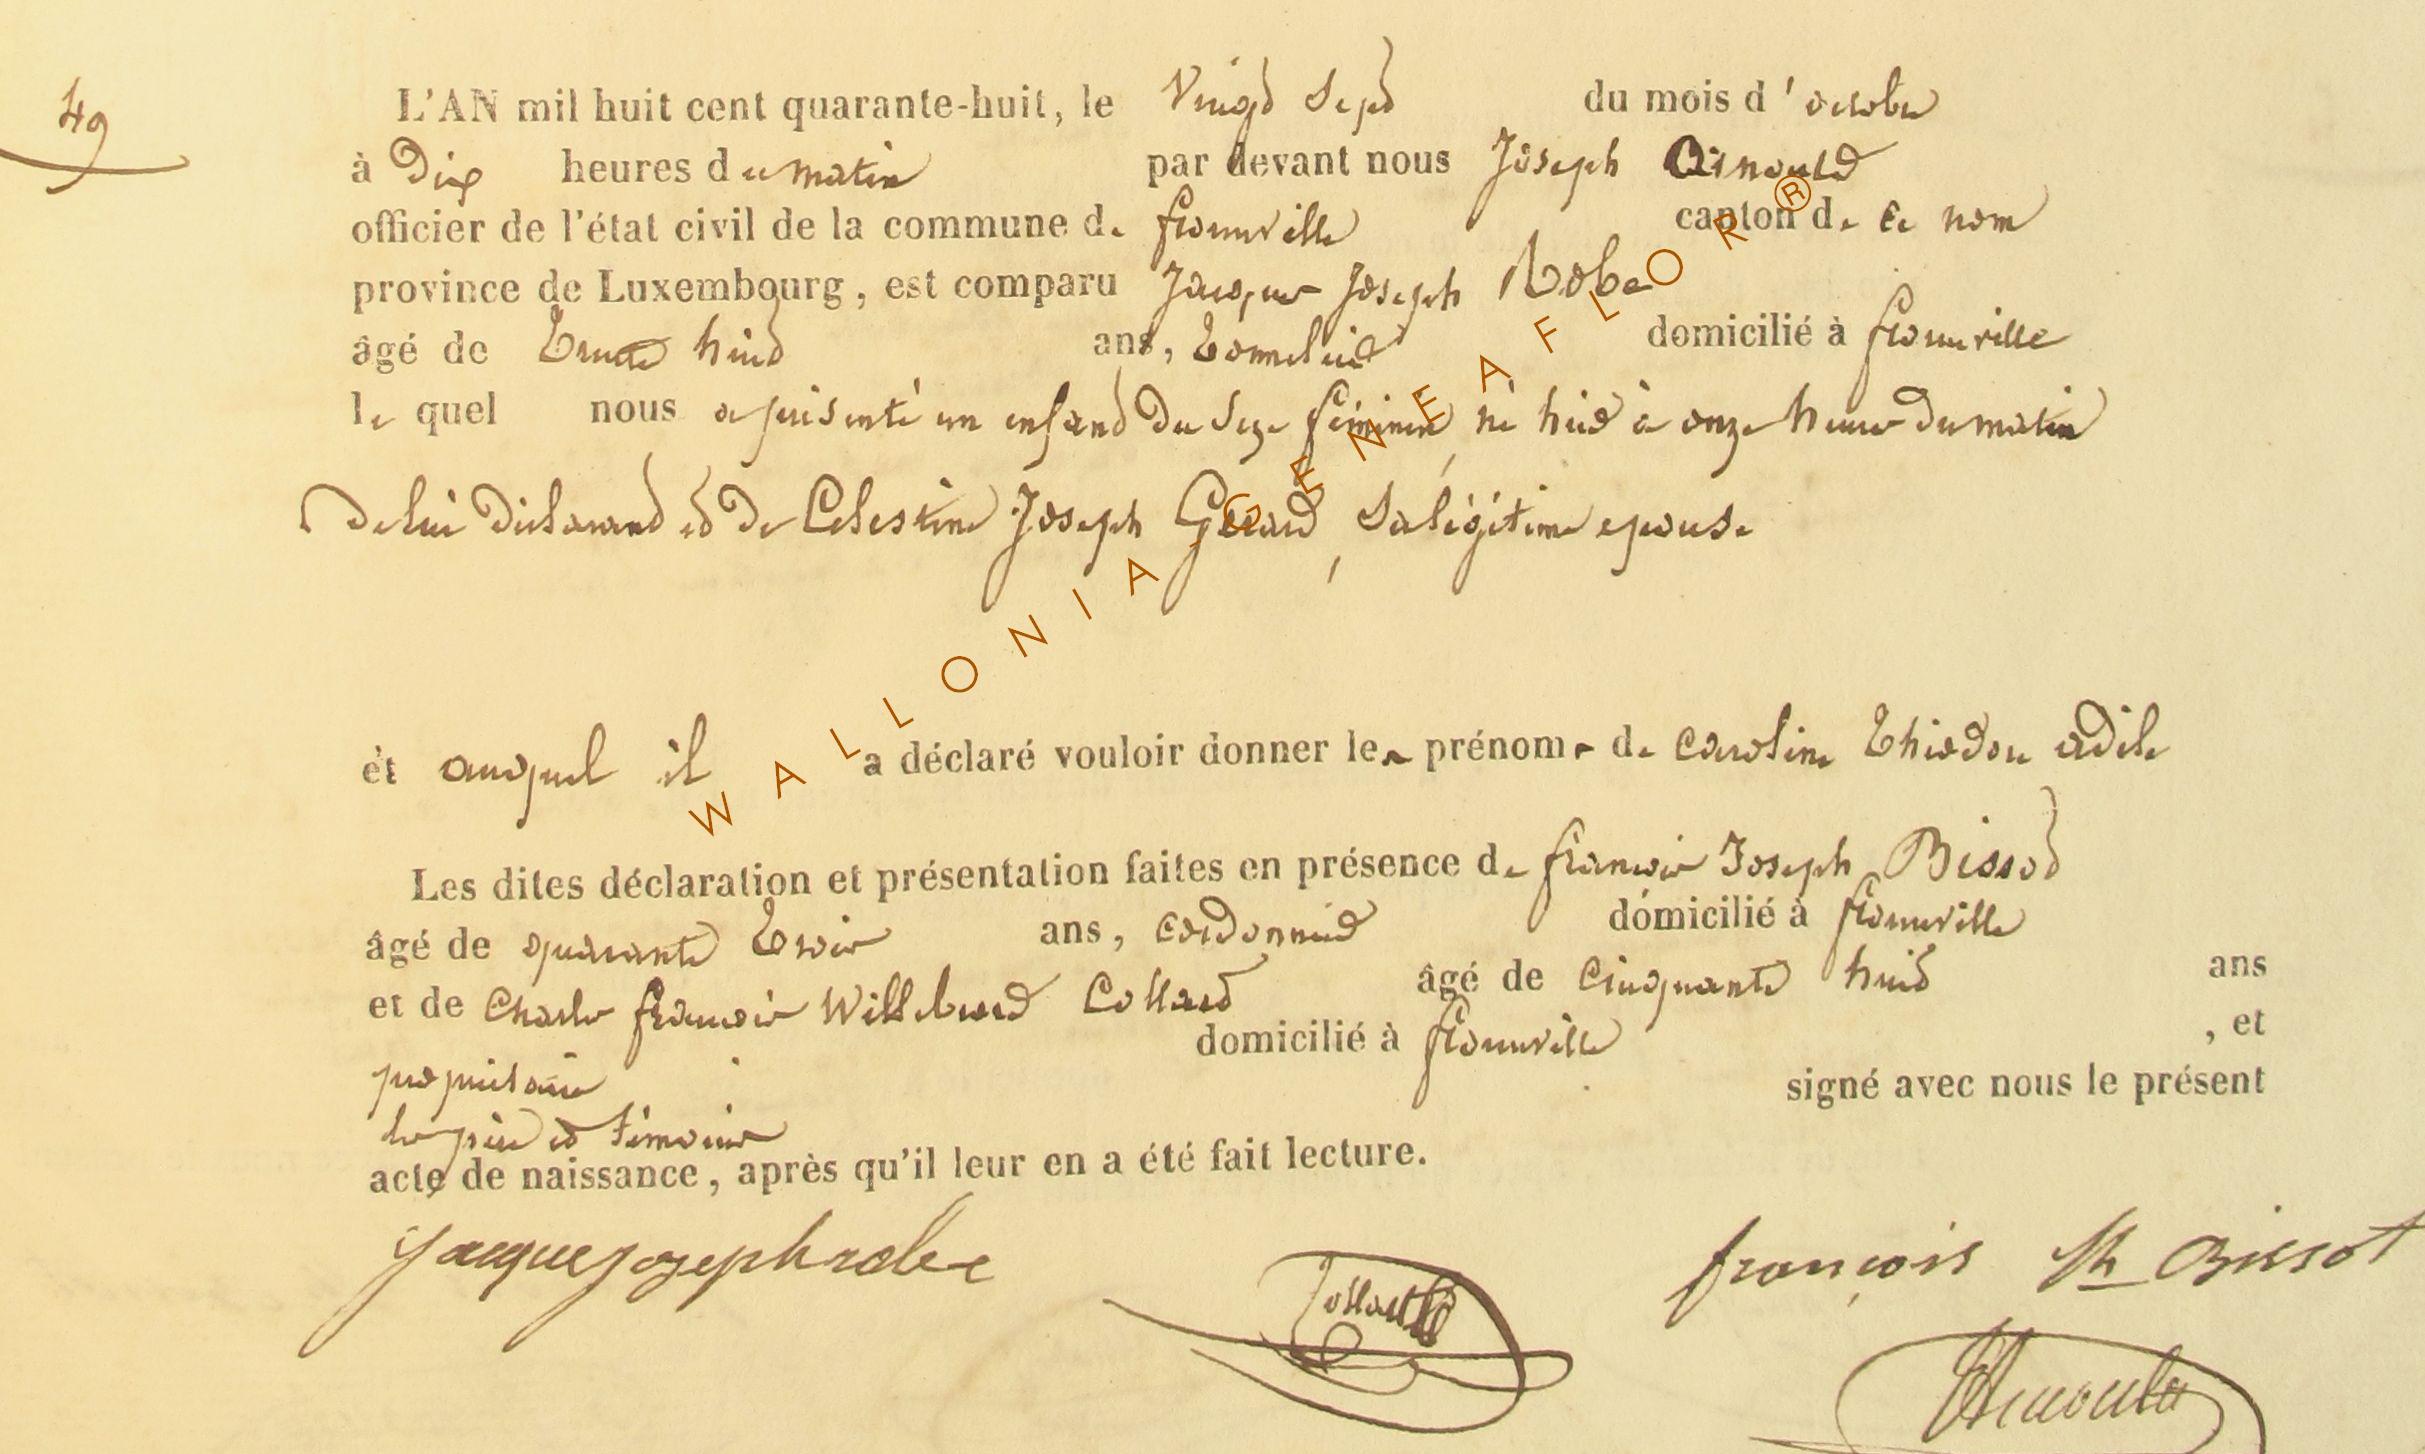 49
L'AN mil huit cent quarante-huit, le vingt sept du mois d'octobre
à Dix heures du matin par devant nous Joseph Arnould
officier de l'état civil de la commune de florenville canton de ce nom
province de Luxembourg, est comparu Jacques Joseph Robe
âgé de trente huit ans, tonnelier domicilié à florenville
le quel nous a présenté un enfant du sexe féminin, né hier à onze heures du matin
de lui déclarant et de Celestine Joseph Gérard, sa légitime epouse
et auquel il a déclaré vouloir donner les prénoms de Caroline adile
Les dites déclaration et présentation faites en présence de françois Joseph Bissot
âgé de quarante trois ans, cordonnier domicilié à florenville
et de Charles françois Willebrord Collard âgé de cinquante huit ans
propriétaire domicilié à florenville, et
les père et témoins signé avec nous le présent
acte de naissance, après qu'il leur en a été fait lecture.
jacque joseph robe
françois Jh Bissot
Collard
JArnould
WALLONIA GENEAFLOR ®